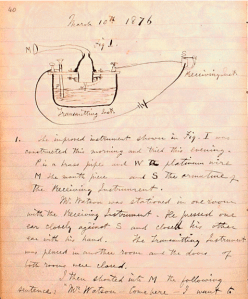 40
March 10th 1876
Fig. 1
M
Receiving Inst.
Transmitting Inst.
1. The improved instrument shown in Fig. I was
constructed this morning and tried this evening.
P is a brass pipe and W the platinum wire
M the mouth piece and S the armature of
the Receiving Instrument.
Mr. Watson was stationed in one room
with the Receiving Instrument. He pressed one
ear closely against S and closed his other
ear with his hand. The Transmitting Instrument
was placed in another room and the doors of
both rooms were closed.
I then shouted into M the following
sentence: "Mr. Watson - Come here - I want to